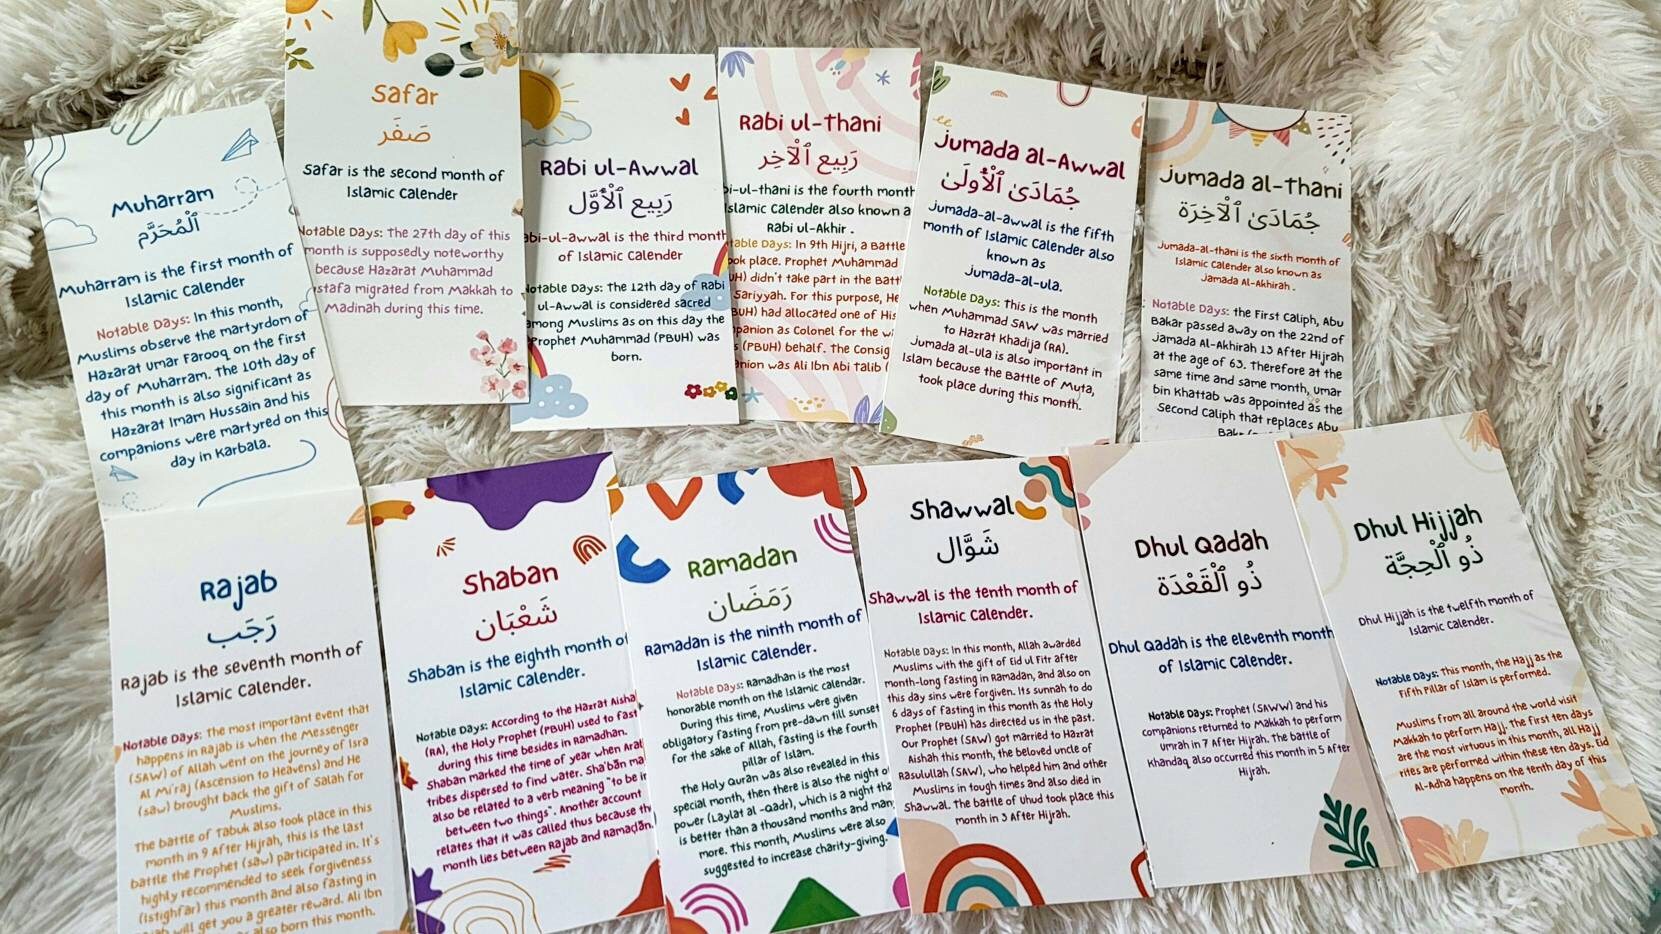 Muharram
ٱلْمُحَرَّم
Muharram is the first month of
Islamic Calender
Notable Days: In this month,
Muslims observe the martyrdom of
Hazarat Umar Farooq on the first
day of Muharram. The 10th day of
this month is also significant as
Hazarat Imam Hussain and his
companions were martyred on this
day in Karbala.
Safar
صَفَر
Safar is the second month of
Islamic Calender
Notable Days: The 27th day of this
month is supposedly noteworthy
because Hazarat Muhammad
stafa migrated from Makkah to
Madinah during this time.
Rabi ul-Awwal
رَبِيع ٱلْأَوَّل
abi-ul-awwal is the third month
of Islamic Calender
Notable Days: The 12th day of Rabi
ul-Awwal is considered sacred
among Muslims as on this day the
Prophet Muhammad (PBUH) was
born.
Rabi ul-Thani
رَبِيع ٱلْآخِر
bi-ul-thani is the fourth month
Islamic Calender also known a
Rabi ul-Akhir .
table Days: In 9th Hijri, a Battle
ook place. Prophet Muhammad
UH) didn't take part in the Batt
Sariyyah. For this purpose, He
BUH) had allocated one of His
mpanion as Colonel for the w
s (PBUH) behalf. The Consig
anion was Ali Ibn Abi Talib (
Jumada al-Awwal
جُمَادَىٰ ٱلْأُولَىٰ
Jumada-al-awwal is the fifth
month of Islamic Calender also
known as
Jumada-al-ula.
Notable Days: This is the month
when Muhammad SAW was married
to Hazrat Khadija (RA).
Jumada al-ula is also important in
Islam because the Battle of Muta,
took place during this month.
Jumada al-Thani
جُمَادَىٰ ٱلْآخِرَة
Jumada-al-thani is the sixth month of
Islamic Calender also known as
Jamada Al-Akhirah .
Notable Days: the First Caliph, Abu
Bakar passed away on the 22nd of
Jamada Al-Akhirah 13 After Hijrah
at the age of 63. Therefore at the
same time and same month, Umar
bin Khattab was appointed as the
Second Caliph that replaces Abu
Rajab
رَجَب
Rajab is the seventh month of
Islamic Calender.
Notable Days: The most important event that
happens in Rajab is when the Messenger
(SAW) of Allah went on the journey of Isra
Al Mi'raj (Ascension to Heavens) and He
(saw) brought back the gift of Salah for
Muslims.
The battle of Tabuk also took place in this
month in 9 After Hijrah, this is the last
battle the Prophet (saw) participated in. It's
highly recommended to seek forgiveness
(Istighfar) this month and also fasting in
will get you a greater reward. Ali Ibn
also born this month.
Shaban
شَعْبَان
Shaban is the eighth month of
Islamic Calender.
Notable Days: According to the Hazrat Aisha
(RA), the Holy Prophet (PBUH) used to fast
during this time besides in Ramadhan.
Shaban marked the time of year when Arab
tribes dispersed to find water. Sha'bān ma
also be related to a verb meaning "to be in
between two things". Another account
relates that it was called thus because th
month lies between Rajab and Ramaḍān.
Ramadan
رَمَضَان
Ramadan is the ninth month of
Islamic Calender.
Notable Days: Ramadhan is the most
honorable month on the Islamic calendar.
During this time, Muslims were given
obligatory fasting from pre-dawn till sunset
for the sake of Allah, fasting is the fourth
pillar of Islam.
The Holy Quran was also revealed in this
special month, then there is also the night o
power (Laylat al -Qadr), which is a night tha
is better than a thousand months and man
more. This month, Muslims were also
suggested to increase charity-giving.
Shawwal
شَوَّال
Shawwal is the tenth month of
Islamic Calender.
Notable Days: In this month, Allah awarded
Muslims with the gift of Eid ul Fitr after
month-long fasting in Ramadan, and also on
this day sins were forgiven. Its sunnah to do
6 days of fasting in this month as the Holy
Prophet (PBUH) has directed us in the past.
Our Prophet (SAW) got married to Hazrat
Aishah this month, the beloved uncle of
Rasulullah (SAW), who helped him and other
Muslims in tough times and also died in
Shawwal. The battle of Uhud took place this
month in 3 After Hijrah.
Dhul Qadah
ذُو ٱلْقَعْدَة
Dhul Qadah is the eleventh month
of Islamic Calender.
Notable Days: Prophet (SAWW) and his
companions returned to Makkah to perform
umrah in 7 After Hijrah. The battle of
Khandaq also occurred this month in 5 After
Hijrah.
Dhul Hijjah
ذُو ٱلْحِجَّة
Dhul Hijjah is the twelfth month of
Islamic Calender.
Notable Days: This month, the Hajj as the
Fifth Pillar of Islam is performed.
Muslims from all around the world visit
Makkah to perform Hajj. The first ten days
are the most virtuous in this month, all Hajj
rites are performed within these ten days. Eid
Al-Adha happens on the tenth day of this
month.